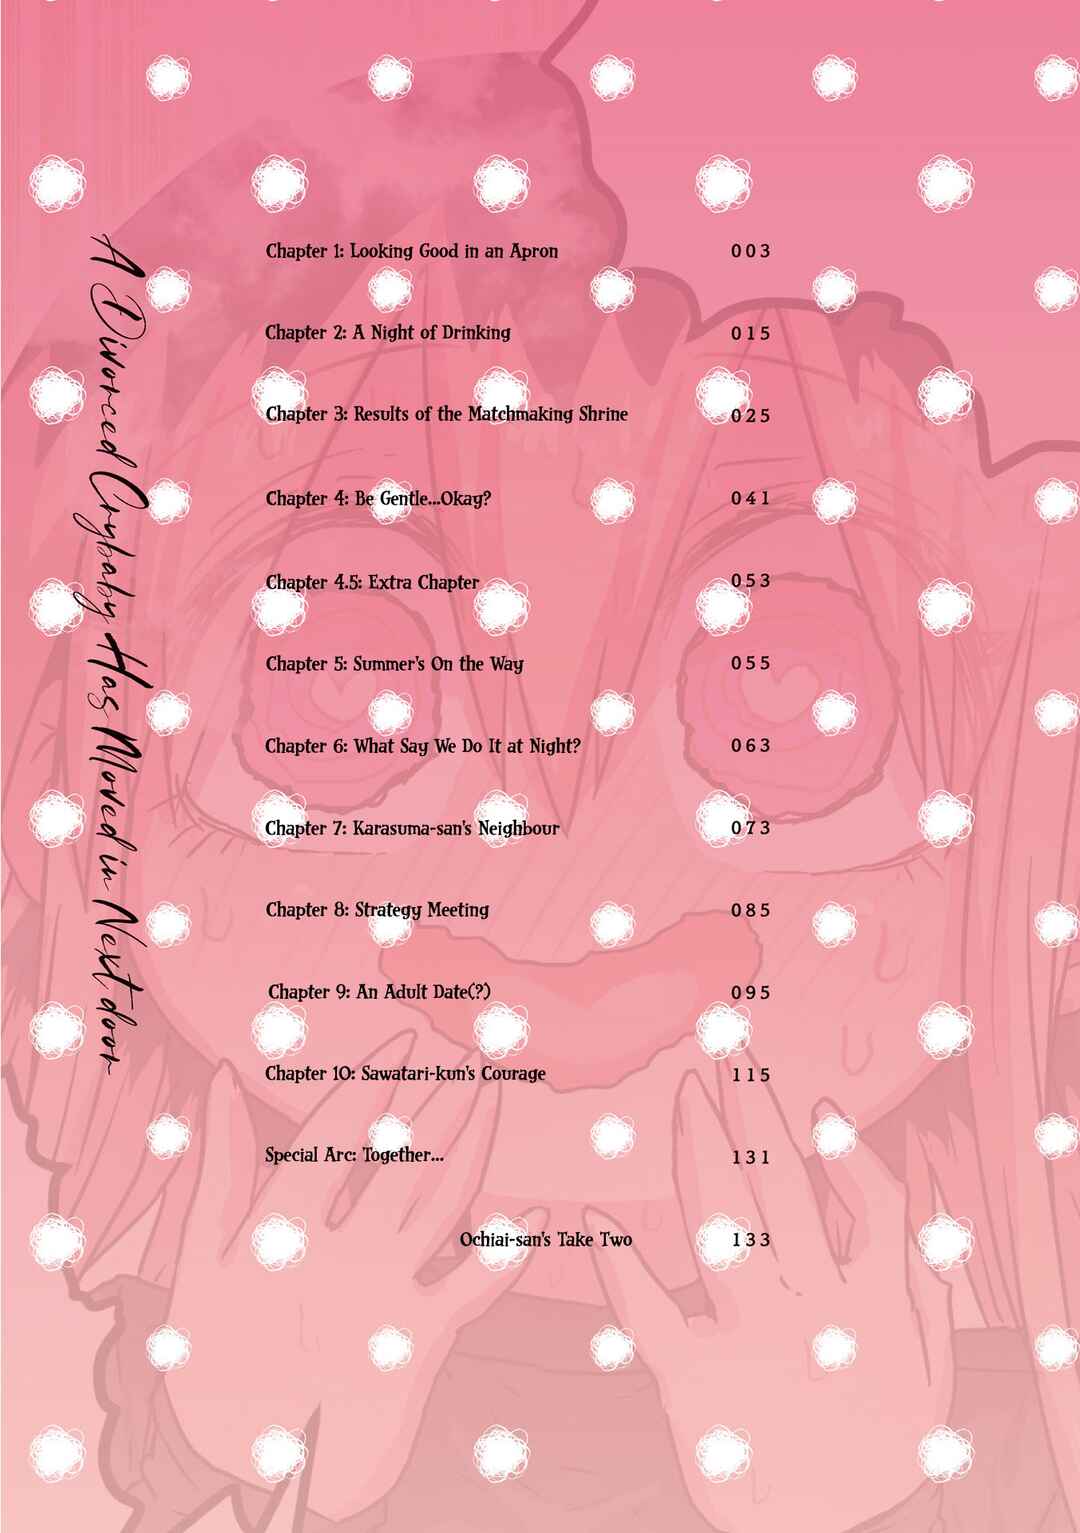 A Divorced Crybaby Has Moved in Next door
Chapter 1: Looking Good in an Apron 003
Chapter 2: A Night of Drinking 015
Chapter 3: Results of the Matchmaking Shrine 025
Chapter 4: Be Gentle...Okay? 041
Chapter 4.5: Extra Chapter 053
Chapter 5: Summer's On the Way 055
Chapter 6: What Say We Do It at Night? 063
Chapter 7: Karasuma-san's Neighbour 073
Chapter 8: Strategy Meeting 085
Chapter 9: An Adult Date(?) 095
Chapter 10: Sawatari-kun's Courage 115
Special Arc: Together... 131
Ochiai-san's Take Two 133